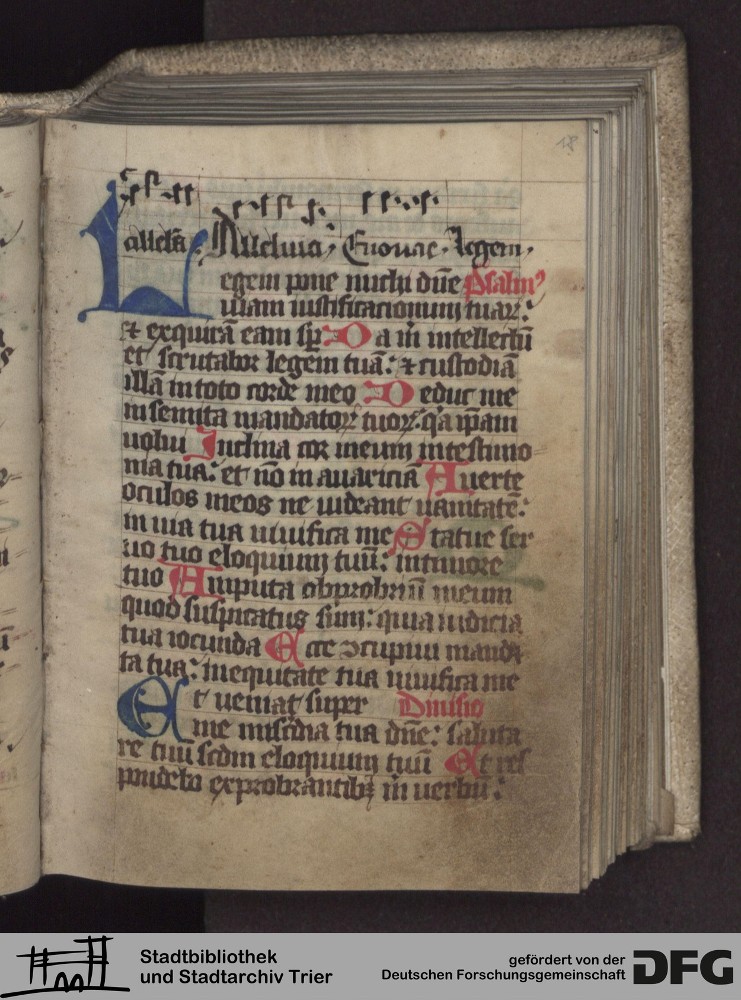 18
alleluia. Alleluia. Euouae. Legem.
Legem pone michi dñe Psalm⁹
uiam iustificacionum tuaꝝ:
⁊ exquirā eam sp̄ꝝ Da m̄ intellectū
et scrutabor legem tuā: ⁊ custodiā
illā in toto corde meo Deduc me
in semita mandatoꝝ tuoꝝ: q̄a ip̄am
uolui Inclina cor meum in testimo
nia tua: et nō in auariciā Auerte
oculos meos ne uideant uanitatē:
in uia tua uiuifica me Statue ser
uo tuo eloquium tuū: in timore
tuo Amputa obprobriū meum
quod suspicatus sum: quia iudicia
tua iocunda Ecce ↄcupiui manda
ta tua: in equitate tua uiuifica me
Et ueniat super Diuisio
me mis̄cdia tua dn̄e: saluta
re tuū scdm eloquium tuū Et res
pondebo exprobrantibꝫ m̄ uerbū:
Stadtbibliothek
und Stadtarchiv Trier
gefördert von der
Deutschen Forschungsgemeinschaft
DFG